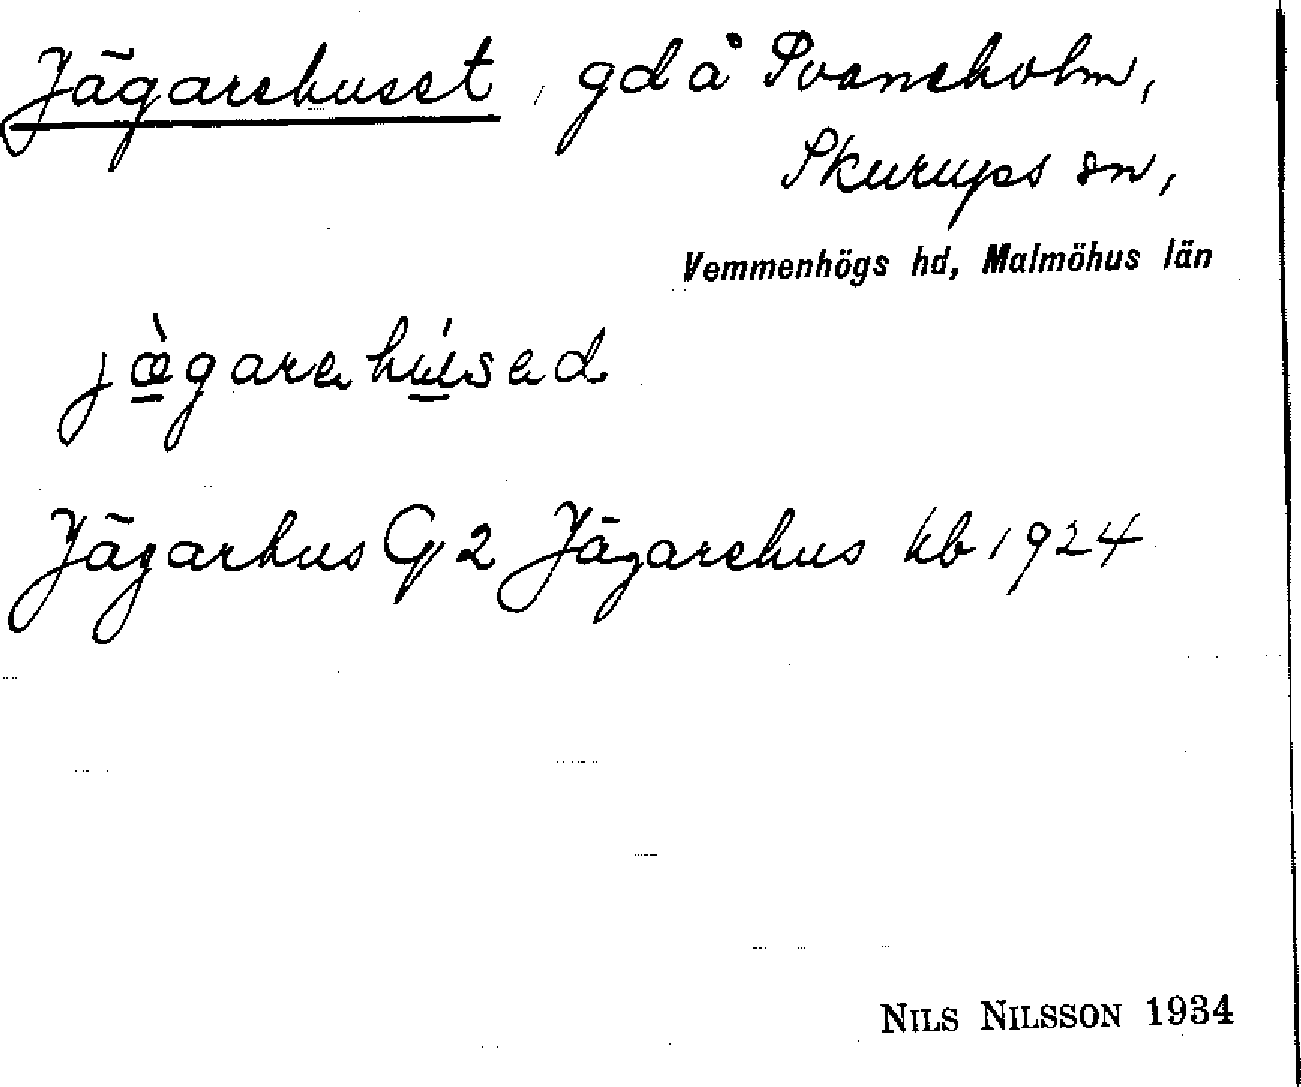 Jägarehuset, gd å Svaneholm,
Skurups sn,
Vemmenhögs hd, Malmöhus län
jæ̀garehúsed
Jägarhus G 2 Jägarehus kb 1924
NILS NILSSON 1934